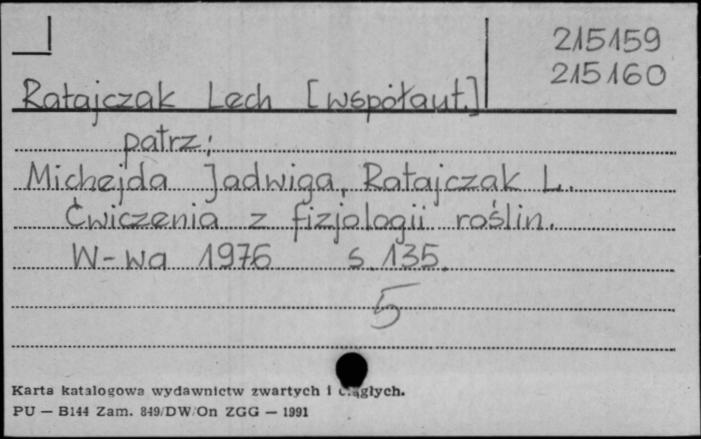 215159
215160
Ratajczak Lech [współaut.]
patrz:
Michejda Jadwiga, Ratajczak L.
Ćwiczenia z fizjologii roślin.
W-wa 1976 s. 135.
5
Karta katalogowa wydawnictw zwartych i ciągłych.
PU — B144 Zam. 849/DW/On ZGG — 1991